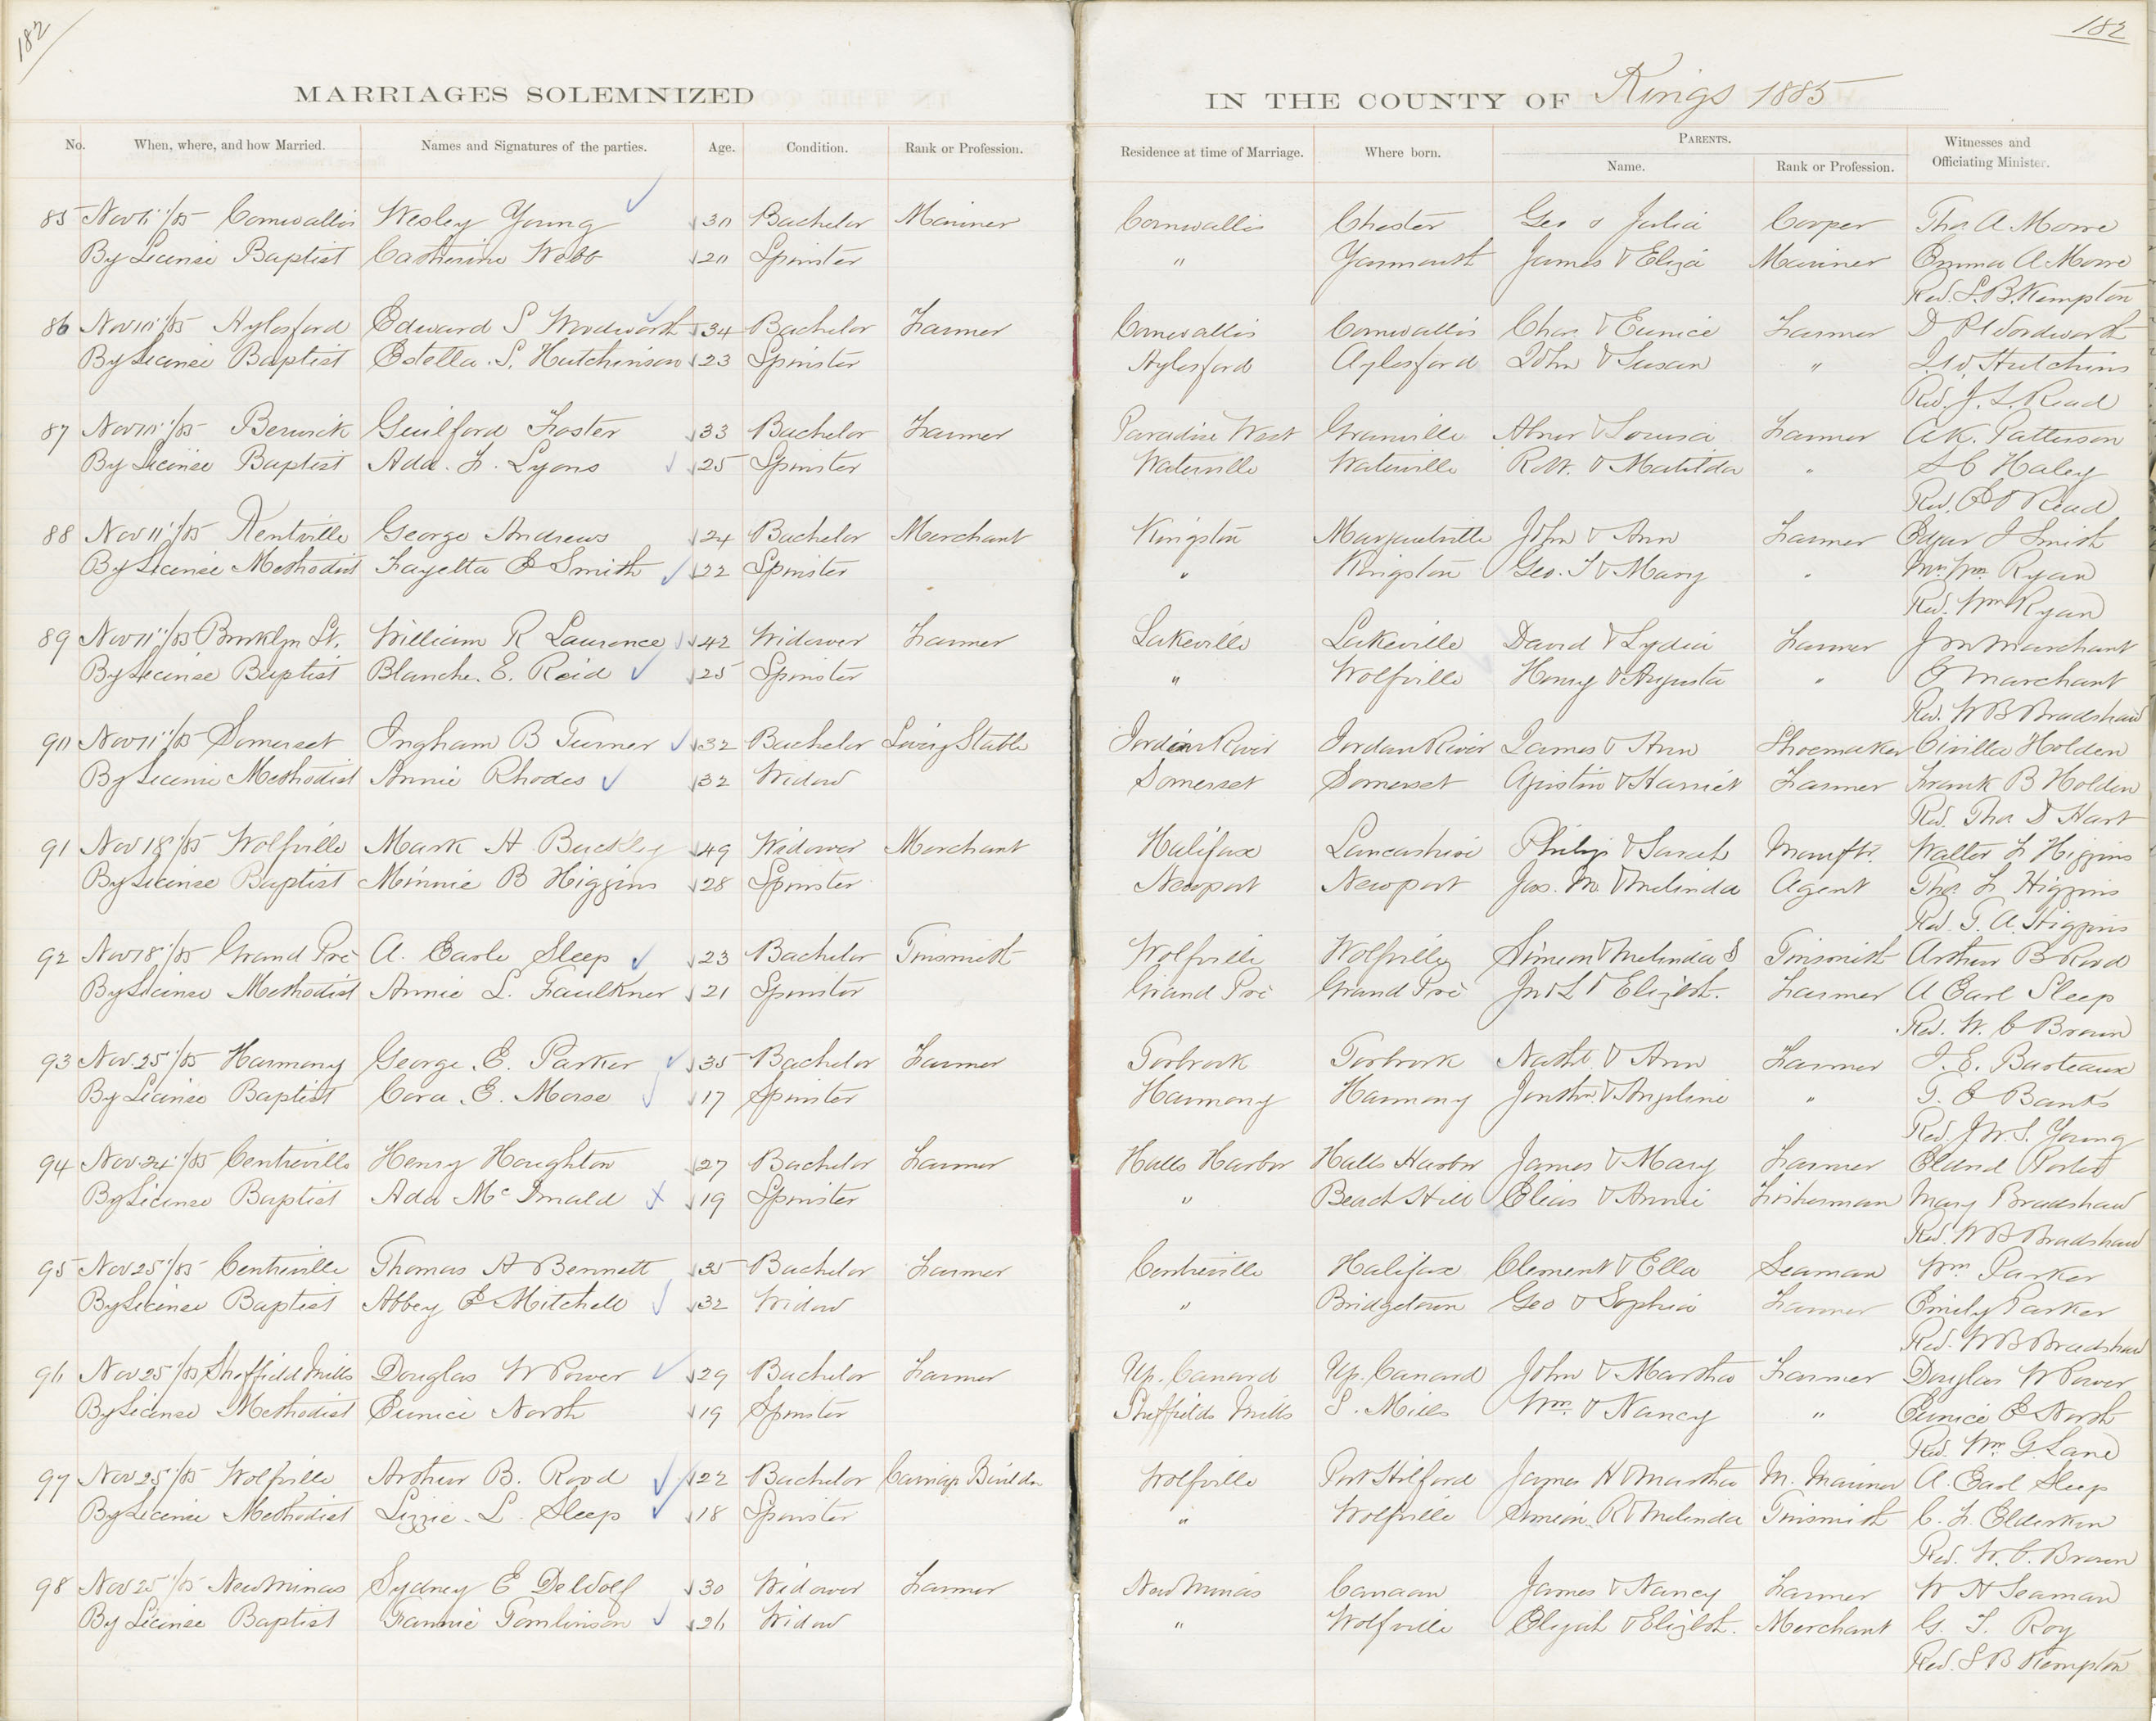 182
182
MARRIAGES SOLEMNIZED IN THE COUNTY OF Kings 1885
No. When, where, and how Married. Names and Signatures of the parties. Age. Condition. Rank or Profession. Residence at time of Marriage. Where born. PARENTS. Name. Rank or Profession. Witnesses and Officiating Minister.
85 Cornwallis Wesley Young 30 Bachelor Mariner Cornwallis Chester Geo & Julia Cooper Tho. A Morse
By License Baptist Catherine Webb 20 Spinster " Yarmouth James & Eliza Mariner Emma A Morse
Rev. S. B. Kempton
86 Nov 10/85 Aylesford Edward S Woodworth 34 Bachelor Farmer Cornwallis Cornwallis Chas & Eunice Farmer D P Woodworth
By License Baptist Estella. S. Hutchinson 23 Spinster Aylesford Aylesford John & Susan " Hutchins
Rev. J. L. Read
87 Nov 10/85 Berwick Guilford Foster 33 Bachelor Farmer Paradise West Granville Abner & Louisa Farmer A K. Patterson
By License Baptist Ada. F. Lyons 25 Spinster Waterville Waterville R. W. & Matilda " S C Haley
Rev. E O Read
88 Nov 11/85 Kentville George Andrews 24 Bachelor Merchant Kingston Margaretville John & Ann Farmer Edgar J Smith
By License Methodist Fayetta E Smith 22 Spinster " Kingston Geo. T & Mary " Mrs. Wm. Ryan
Rev. Wm Ryan
89 Nov 11/85 Brooklyn St. William R Laurence 42 Widower Farmer Lakeville Lakeville David & Lydia Farmer J M Marchant
By License Baptist Blanche. E. Reid 25 Spinster " Wolfville Henry & Augusta " E Marchant
Rev. W B Bradshaw
90 Nov 11/85 Somerset Ingham B Turner 32 Bachelor Livery Stable Jordan River Jordan River James & Ann Shoemaker Civilla Holden
By License Methodist Annie Rhodes 32 Widow Somerset Somerset & Harriet Farmer Frank B Holden
Rev. Tho D Hart
91 Nov 18/85 Wolfville Mark A Buckley 49 Widower Merchant Halifax Lancashire Philip & Sarah Manuftr. Walter F Higgins
By License Baptist Minnie B Higgins 28 Spinster Newport Newport Jas. M. & Melinda Agent Tho. F Higgins
Rev. T. A. Higgins
92 Nov 18/85 Grand Pré A. Earle Sleep 23 Bachelor Tinsmith Wolfville Wolfville Simeon & Melinda S Tinsmith Arthur B Rood
By License Methodist Annie L. Faulkner 21 Spinster Grand Pré Grand Pré & Elizbth. Farmer A Earl Sleep
Rev. W. C Brown
93 Nov. 25/85 Harmony George. E. Parker 35 Bachelor Farmer Torbrook Torbrook Nathl. & Ann Farmer I. E. Barteaux
By License Baptist Cora. E. Morse 17 Spinster Harmony Harmony Jonthn. & Angeline " T. E Banks
Rev. J. W. S. Young
94 Nov. 24/85 Centreville Henry Houghton 27 Bachelor Farmer Halls Harbor Halls Harbor James & Mary Farmer
By License Baptist Ada McDonald 19 Spinster " Beach Hill Elias & Annie Fisherman Mary Bradshaw
Rev. W B Bradshaw
95 Nov 25/85 Centreville Thomas A Bennett 35 Bachelor Farmer Centreville Halifax Clement & Ella Seaman Wm Parker
By License Baptist Abbey E Mitchell 32 Widow " Bridgetown Geo & Sophia Farmer Emily Parker
Rev. W B Bradshaw
96 Nov 25/85 Sheffield Mills Douglas W Power 29 Bachelor Farmer Up. Canard Up. Canard John & Martha Farmer Douglas W Power
By License Methodist Eunice North 19 Spinster Sheffields Mills S. Mills Wm. & Nancy " Eunice E North
Rev. Wm G. Lane
97 Nov 25/85 Wolfville Arthur B. Rood 22 Bachelor Carriage Builder Wolfville Port Hilford James H & Martha M. Mariner A. Earl Sleep
By License Methodist Lizzie. L. Sleep 18 Spinster " Wolfville Simeon. R & Melinda Tinsmith C. F. Elderkin
Rev. W. C. Brown
98 Nov 25/85 New Minas Sydney E DeWolf 30 Widower Farmer New Minas Canaan James & Nancy Farmer W H Seaman
By License Baptist Fannie Tomlinson 26 Widow " Wolfville Elijah & Elizbth. Merchant G. T. Roy
Rev. S. B Kempton